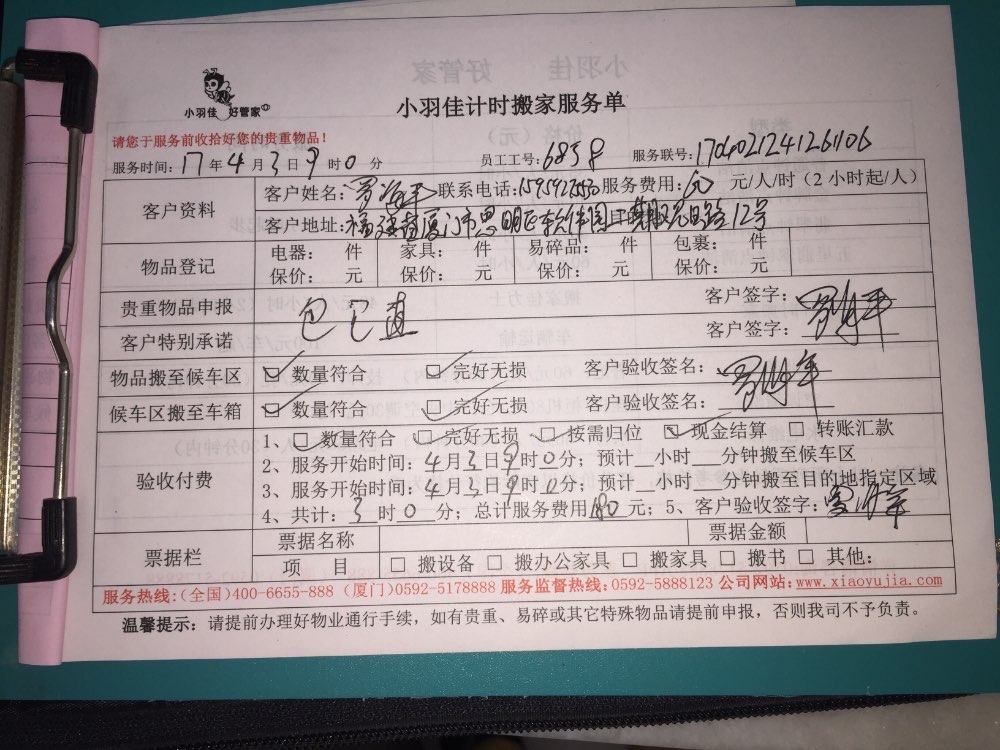 小羽佳 好管家
小羽佳计时搬家服务单
请您于服务前收拾好您的贵重物品！
服务时间：17年4月3日9时0分 员工工号：6858 服务联号：170402124126106
客户资料 客户姓名： 联系电话： 服务费用： 元/人/时（2小时起/人）
客户地址：福建省厦门市思明区软件园二期观日路12号
物品登记 电器： 件 家具： 件 易碎品： 件 包裹： 件
保价： 元 保价： 元 保价： 元 保价： 元
贵重物品申报 客户签字：
客户特别承诺 客户签字：
物品搬至候车区 数量符合 完好无损 客户验收签名：
候车区搬至车箱 数量符合 完好无损 客户验收签名：
验收付费 1、数量符合 完好无损 按需归位 现金结算 转账汇款
2、服务开始时间：4月3日9时0分；预计 小时 分钟搬至候车区
3、服务开始时间：4月3日9时0分；预计 小时 分钟搬至目的地指定区域
4、共计：3时0分；总计服务费用180元；5、客户验收签字：
票据栏 票据名称 票据金额
项 目 搬设备 搬办公家具 搬家具 搬书 其他：
服务热线：（全国）400-6655-888（厦门）0592-5178888 服务监督热线：0592-5888123 公司网站：www.xiaoyujia.com
温馨提示：请提前办理好物业通行手续，如有贵重、易碎或其它特殊物品请提前申报，否则我司不予负责。